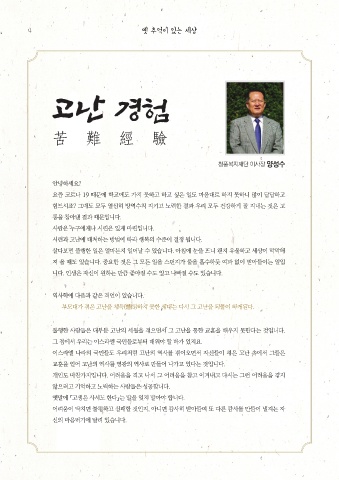 4
옛 추억이 있는 세상
고난 경험
苦 難 經 驗
청풍복지재단 이사장 양성수
안녕하세요?
요즘 코로나 19 때문에 학교에도 가지 못하고 하고 싶은 일도 마음대로 하지 못하니 많이 답답하고
힘드시죠? 그래도 모두 열심히 방역수칙 지키고 노력한 결과 우리 모두 건강하게 잘 지내는 것은 고
통을 참아낸 결과 때문입니다.
시련은 누구에게나 시련은 있게 마련입니다.
시련과 고난에 대처하는 방법에 따라 행복의 수준이 결정 됩니다.
살다보면 불행한 일은 얼마든지 일어날 수 있습니다. 마음에 눈을 뜨니 왠지 우울하고 세상이 막막해
져 올 때도 있습니다. 중요한 것은 그 모든 일을 스펀지가 물을 흡수하듯 여과 없이 받아들이는 일입
니다. 인생은 자신이 원하는 만큼 좋아질 수도 있고 나빠질 수도 있습니다.
역사학에 다음과 같은 격언이 있습니다.
부모대가 겪은 고난을 제대로 하지 못한 세대는 다시 그 고난을 되풀이 하게된다.
불행한 사람들은 대부분 고난의 세월을 겪으면서 그 고난을 통한 교훈을 배우지 못한다는 것입니다.
그 점에서 우리는 이스라엘 민족들로부터 배워야 할 하가 있겠죠.
이스라엘 나라의 국민들도 우리처럼 고난의 역사를 겪어오면서 자신들이 겪은 고난 속에서 그들은
교훈을 얻어 고난의 역사를 영광의 역사로 만들어 나가고 있다는 것입니다.
개인도 마찬가지입니다. 어려움을 겪고 나서 그 어려움을 참고 이겨내고 다시는 그런 어려움을 겪지
않으려고 기억하고 노력하는 사람들은 성공합니다.
옛말에 「고생은 사서도 한다」는 말을 잊지 말아야 합니다.
어려움이 닥치면 불평하고 실패할 것인지, 아니면 감사히 받아들여 또 다른 감사를 만들어 낼지는 자
신의 마음먹기에 달려 있습니다.